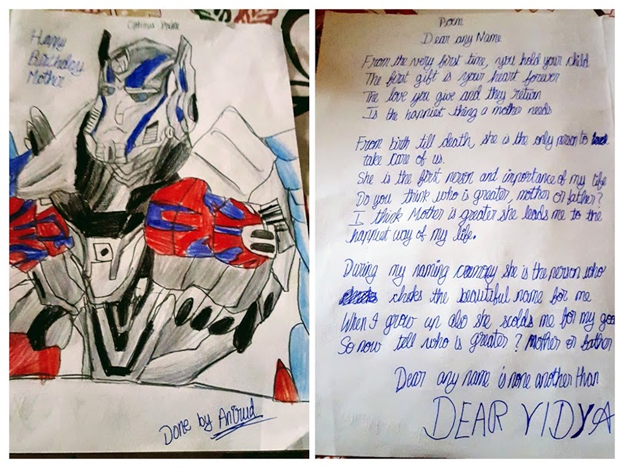 Optimus Prime
Happy
Birthday
Mother
Done by Anirud
Poem
Dear any Name
From the very first time, you hold your child
The first gift is your heart forever
The love you give and they return
Is the happiest thing a mother needs
From birth till death, she is the only person to
take care of us.
She is the first person and importance of my life
Do you think who is greater, mother or father?
I think Mother is greater she leads me to the
happiest way of my life.
During my naming she is the person who
the beautiful name for me
When I grow up also she scolds me for my goo
So now tell who is greater? Mother or father
Dear any name is none another than
DEAR VIDYA